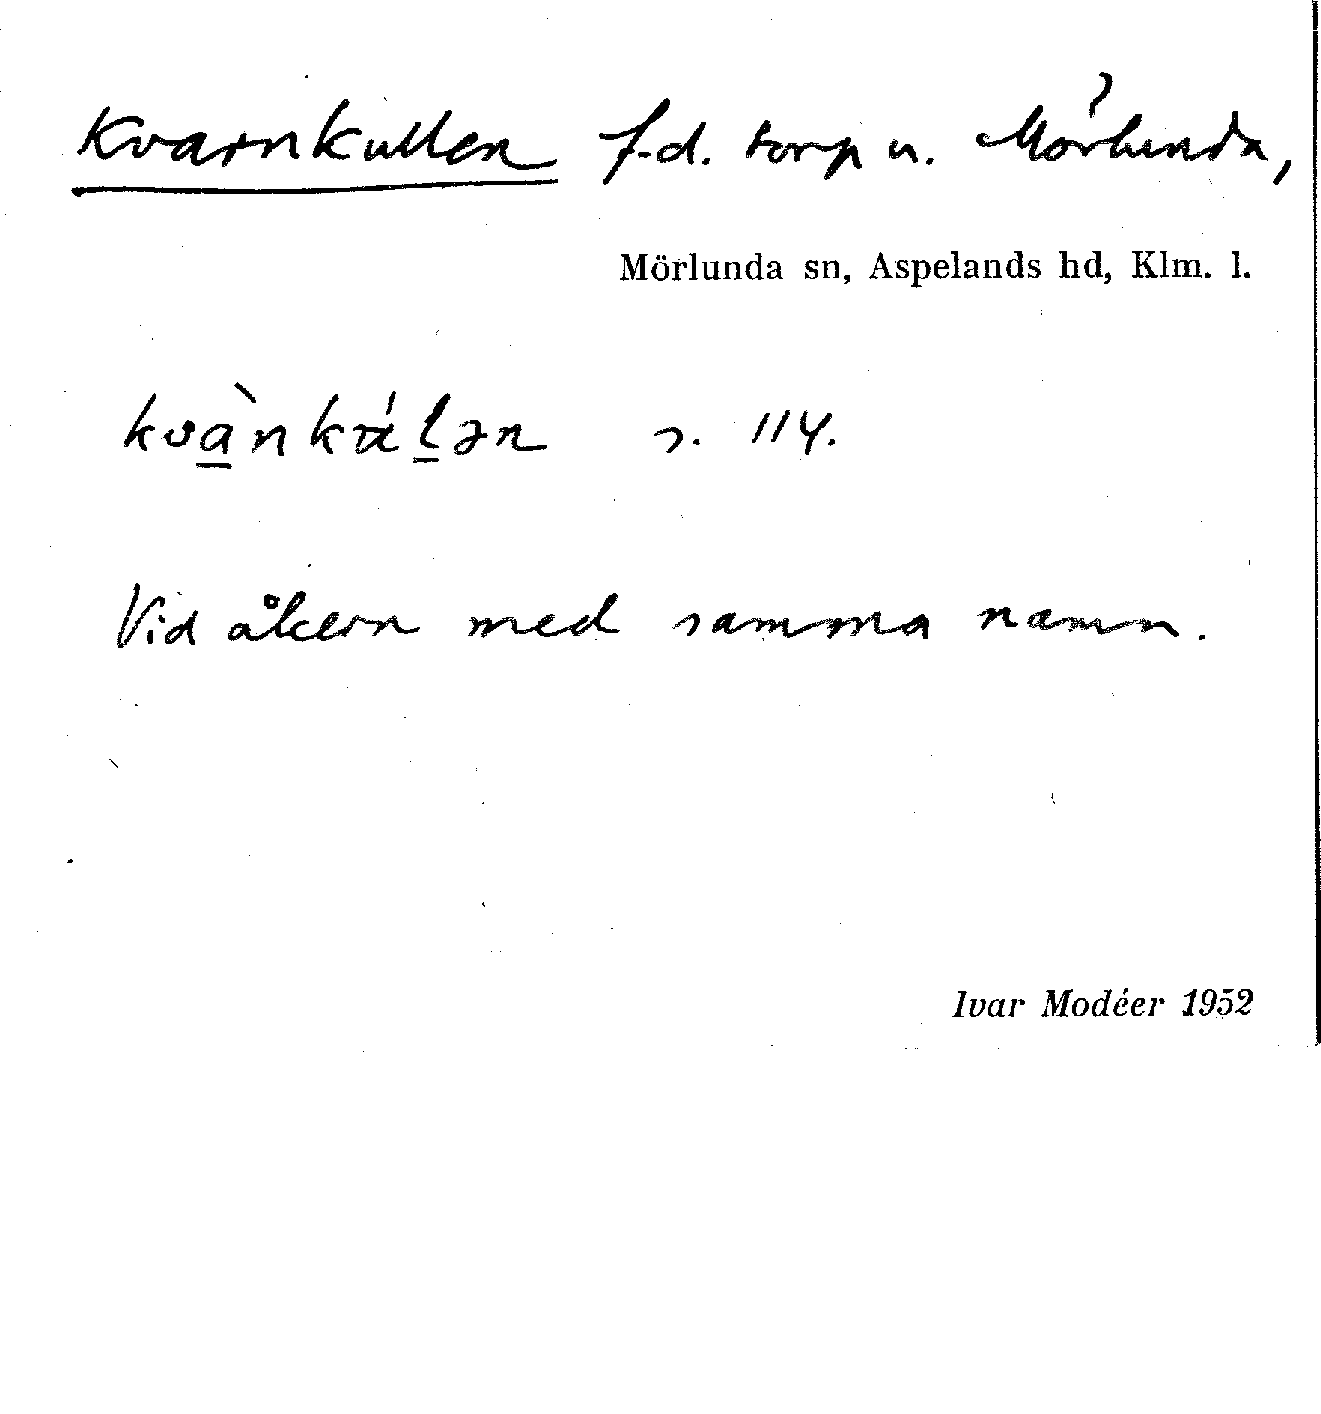 Kvarnkullen f.d. torp u. Mörlunda,
Mörlunda sn, Aspelands hd, Klm. l.
s. 114.
Vid åkern med samma namn.
Ivar Modéer 1952